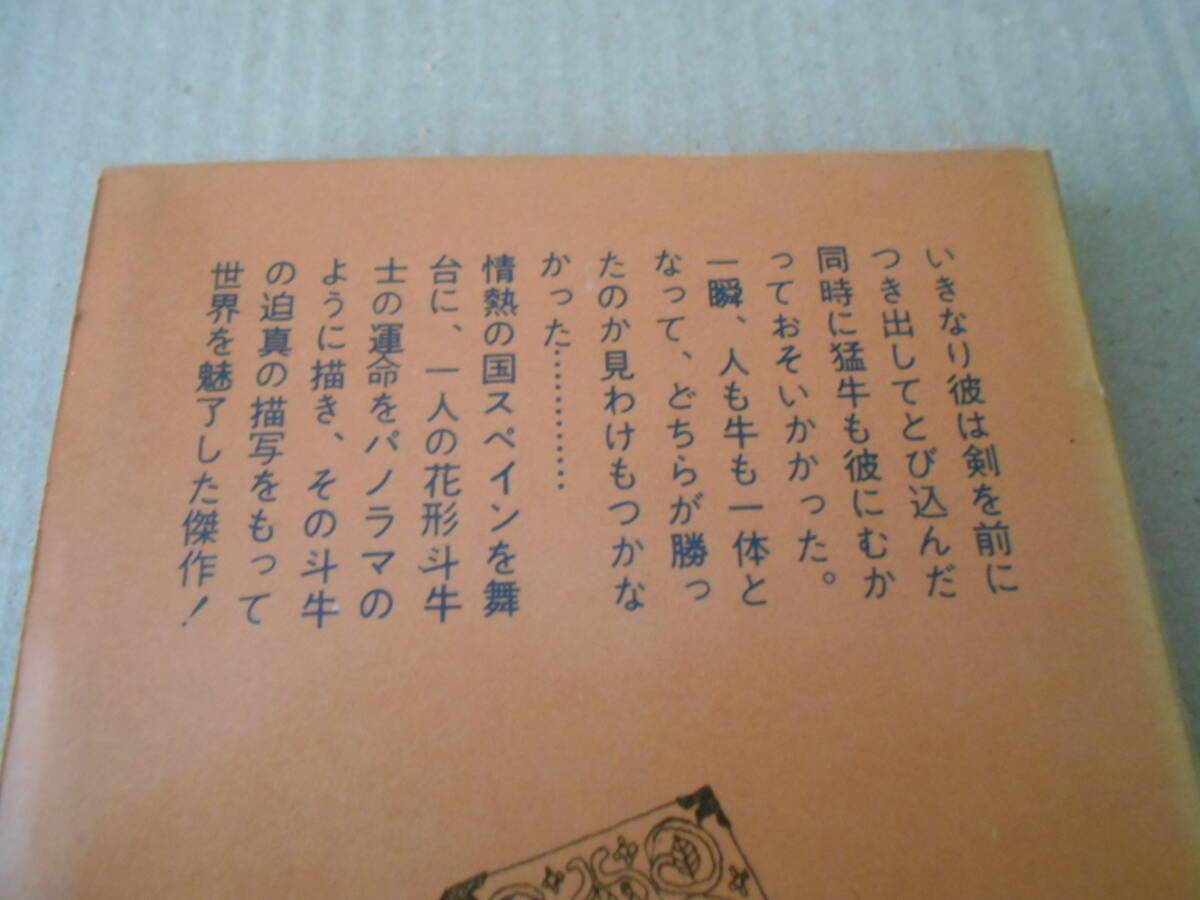 いきなり彼は剣を前に
つき出してとび込んだ
同時に猛牛も彼にむか
っておそいかかった。
一瞬、人も牛も一体と
なって、どちらが勝っ
たのか見わけもつかな
かった…………
情熱の国スペインを舞
台に、一人の花形斗牛
士の運命をパノラマの
ように描き、その斗牛
の迫真の描写をもって
世界を魅了した傑作！